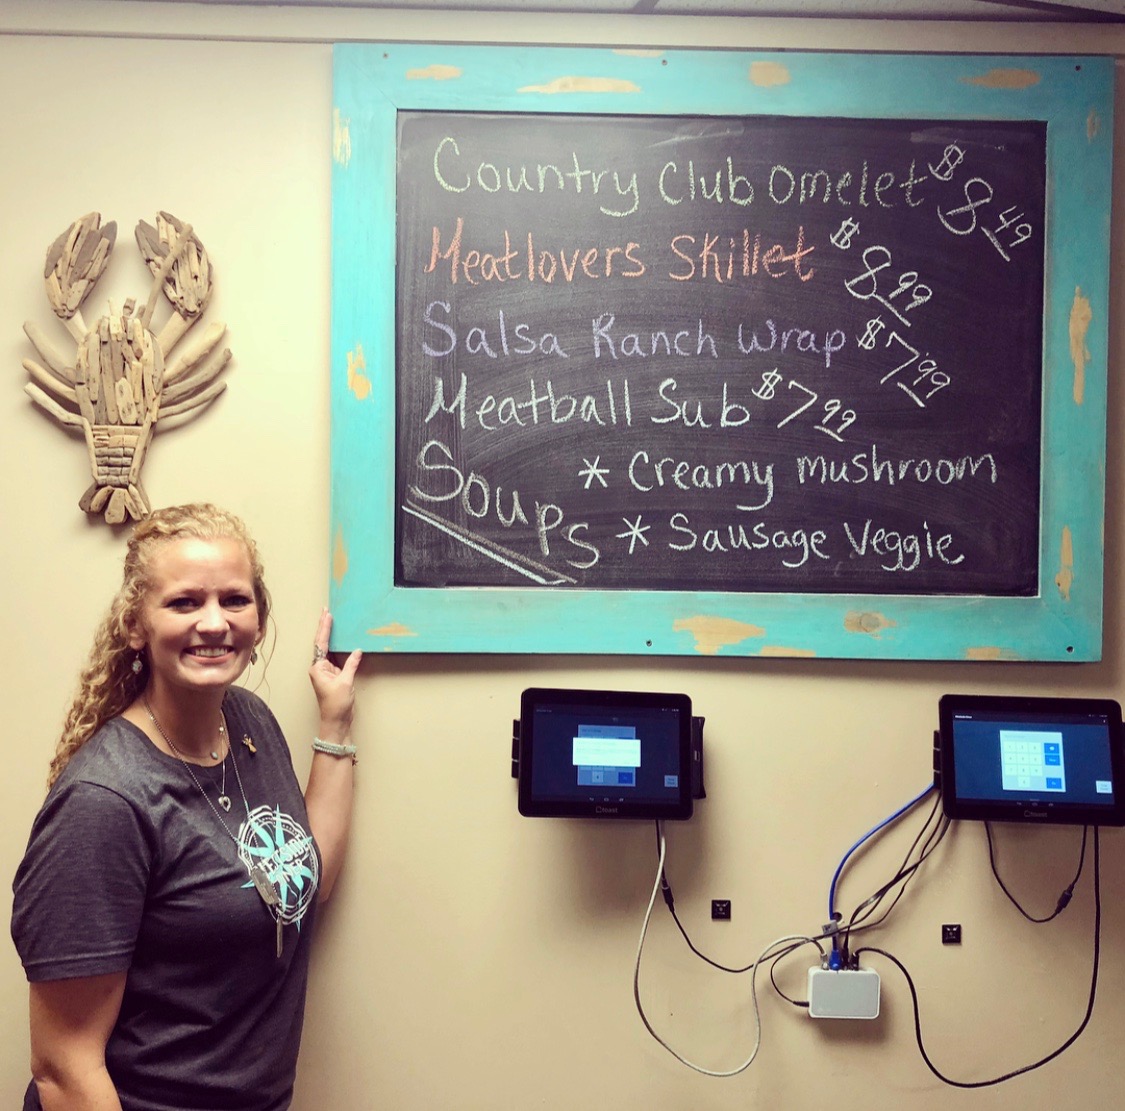 Country Club Omelet $8.49
Meatlovers Skillet $8.99
Salsa Ranch Wrap $7.99
Meatball Sub $7.99
Soups * Creamy mushroom
* Sausage Veggie
toast
toast